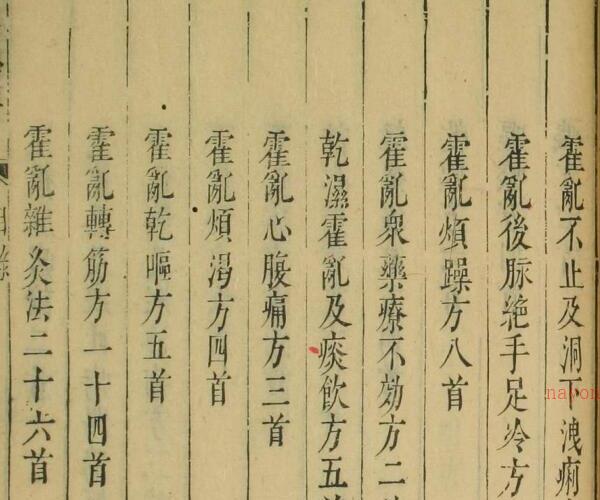 霍亂不止及洞下洩痢
霍亂後脉絶手足冷方
霍亂煩躁方八首
霍亂衆藥療不効方二
乾濕霍亂及痰飲方五
霍亂心腹痛方三首
霍亂煩渴方四首
霍亂乾嘔方五首
霍亂轉筋方一十四首
霍亂雜灸法二十六首
目録